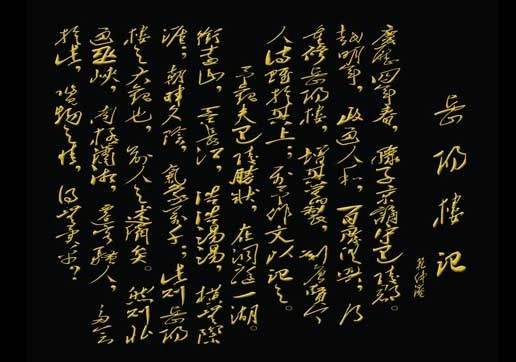 岳阳楼记
范仲淹
庆历四年春，滕子京谪守巴陵郡。
越明年，政通人和，百废具兴，乃
重修岳阳楼，增其旧制，刻唐贤今
人诗赋于其上；属予作文以记之。
予观夫巴陵胜状，在洞庭一湖。
衔远山，吞长江，浩浩汤汤，横无际
涯；朝晖夕阴，气象万千；此则岳阳
楼之大观也，前人之述备矣。然则北
通巫峡，南极潇湘，迁客骚人，多会
于此，览物之情，得无异乎？